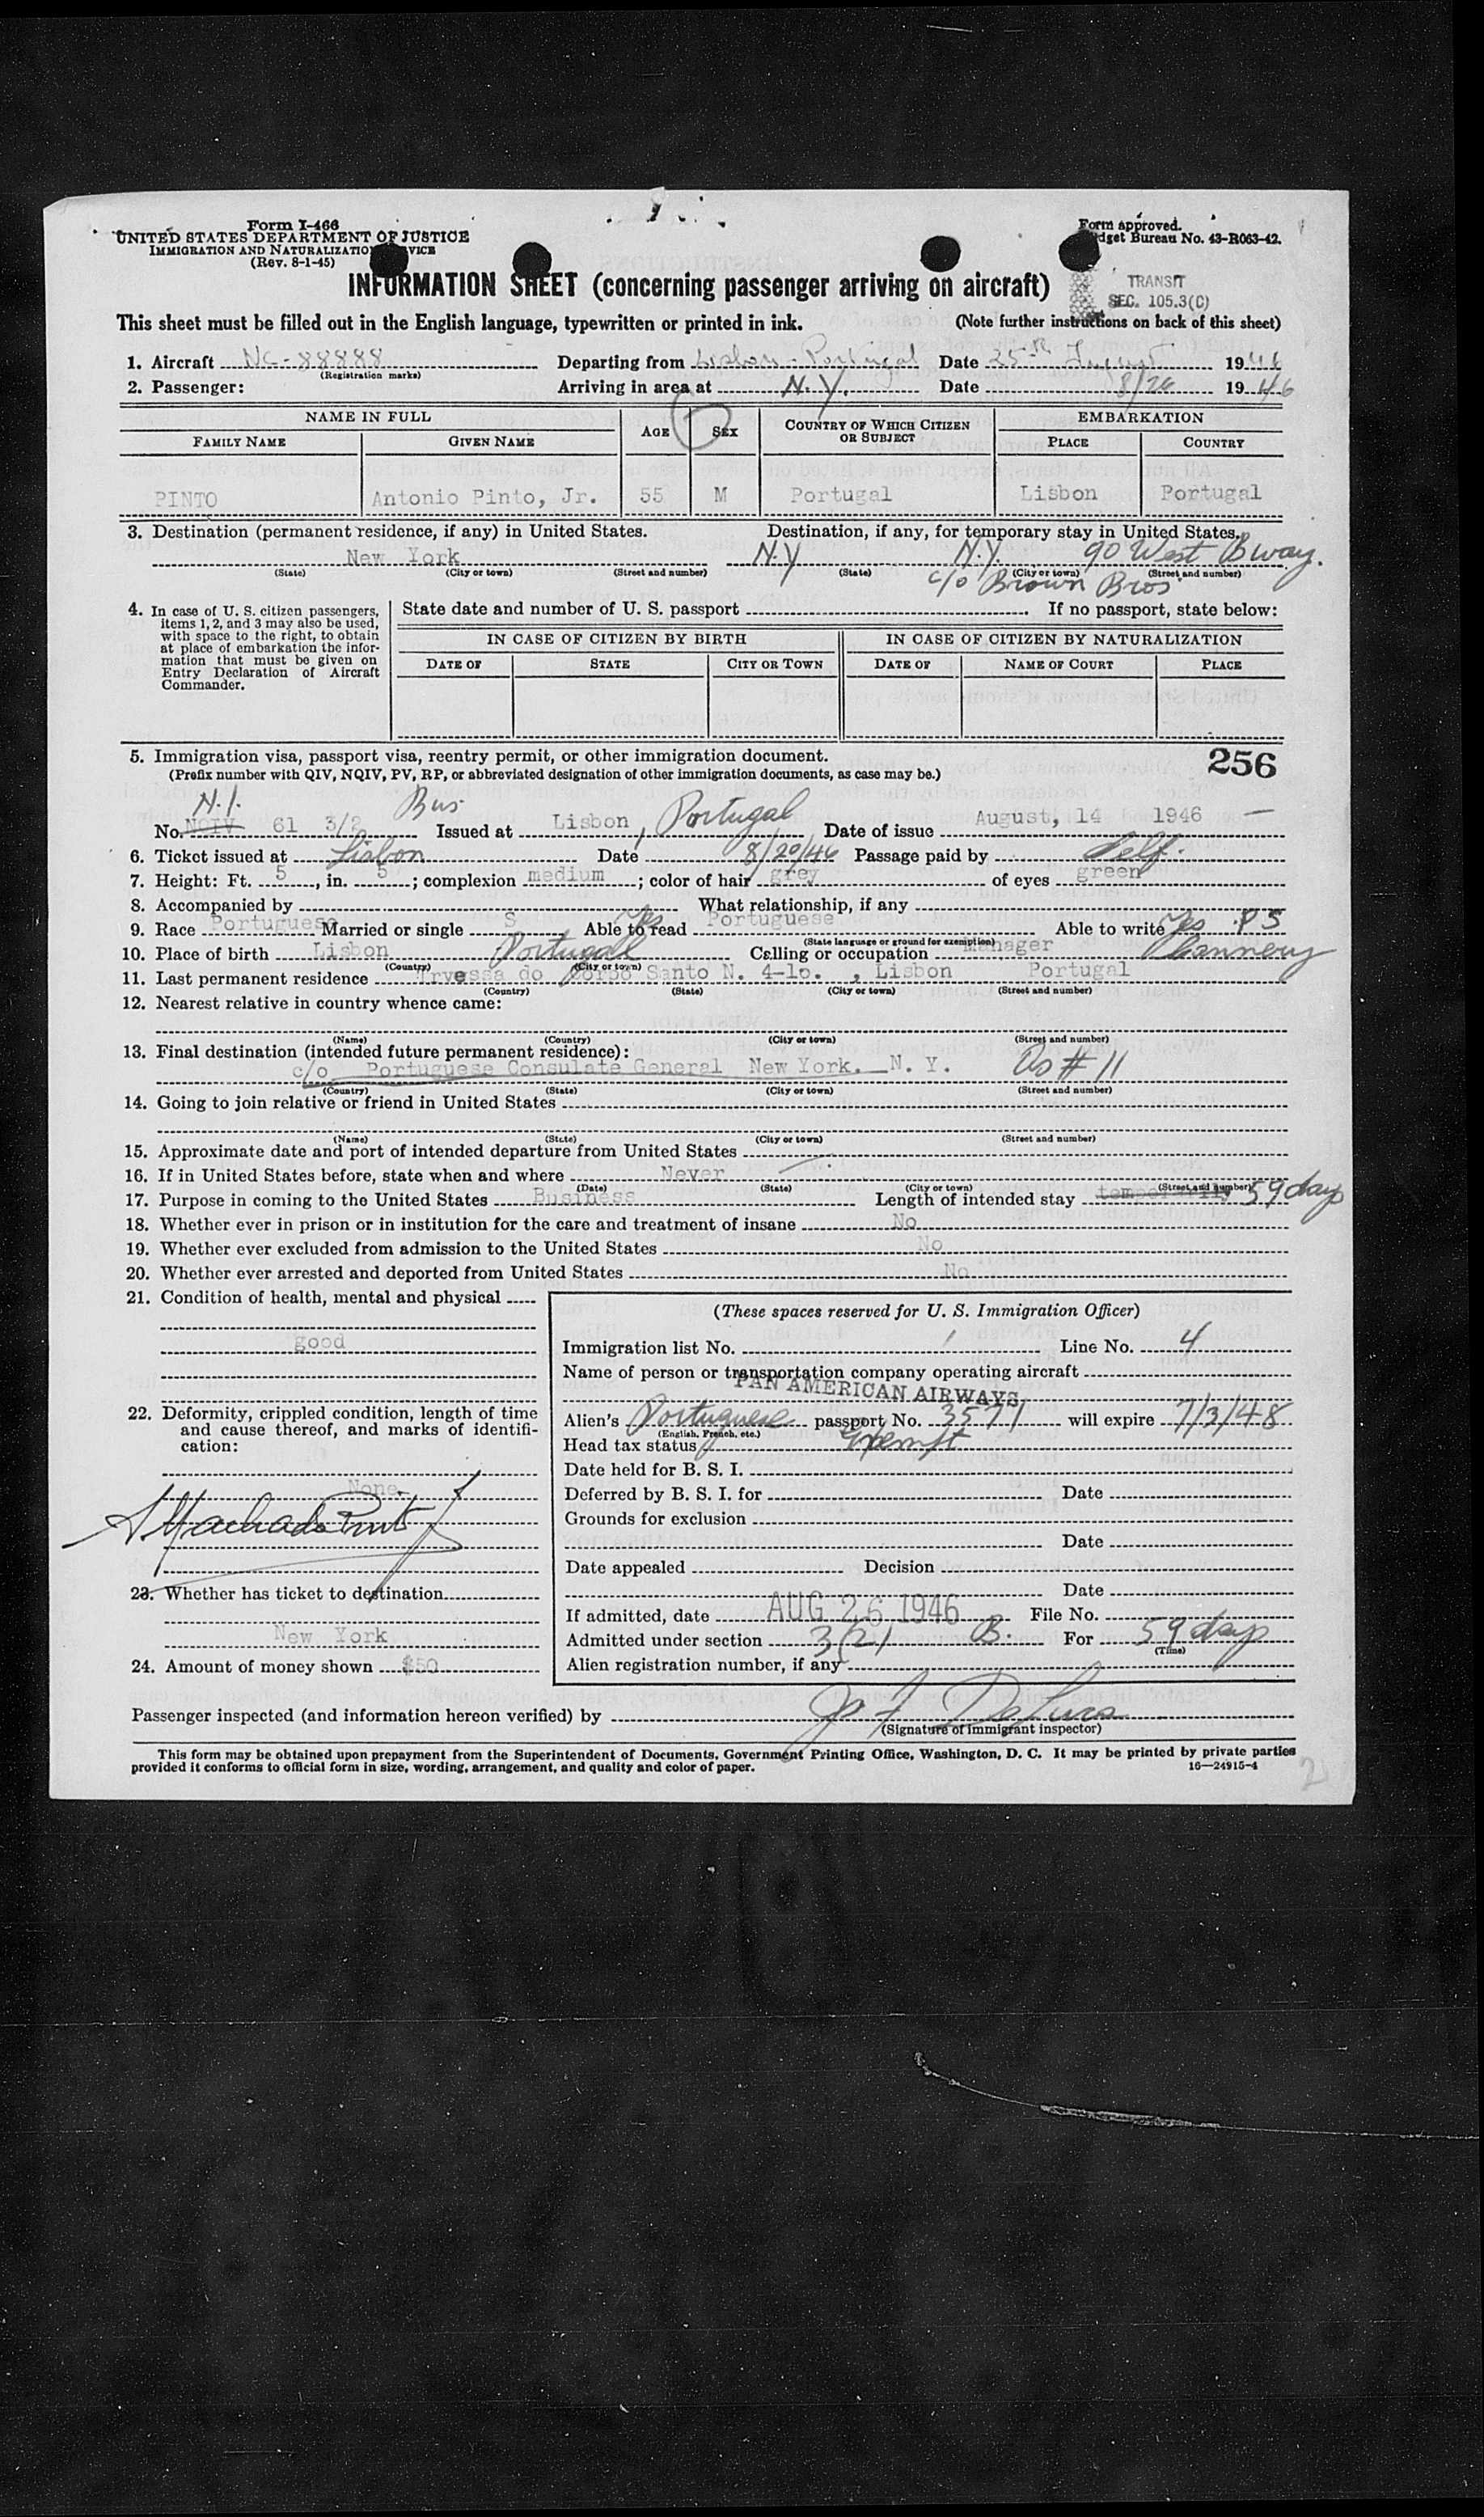 Form I-466
UNITED STATES DEPARTMENT OF JUSTICE
IMMIGRATION AND NATURALIZATION SERVICE
(Rev. 8-1-45)
Form approved.
Budget Bureau No. 43-R063-42.
INFORMATION SHEET (concerning passenger arriving on aircraft)
TRANSIT
SEC. 105.3(C)
This sheet must be filled out in the English language, typewritten or printed in ink. (Note further instructions on back of this sheet)
1. Aircraft NC-88888 Departing from Lisbon - Portugal Date 25th August 1946
(Registration marks)
2. Passenger: Arriving in area at N.Y. Date 8/26 1946
NAME IN FULL AGE SEX COUNTRY OF WHICH CITIZEN OR SUBJECT EMBARKATION
FAMILY NAME GIVEN NAME PLACE COUNTRY
PINTO Antonio Pinto, Jr. 55 M Portugal Lisbon Portugal
3. Destination (permanent residence, if any) in United States. Destination, if any, for temporary stay in United States.
New York N.Y N.Y. 90 West Bway.
(State) (City or town) (Street and number) (State) (City or town) (Street and number)
c/o Brown Bros
4. In case of U. S. citizen passengers, items 1, 2, and 3 may also be used, with space to the right, to obtain at place of embarkation the information that must be given on Entry Declaration of Aircraft Commander.
State date and number of U. S. passport If no passport, state below:
IN CASE OF CITIZEN BY BIRTH IN CASE OF CITIZEN BY NATURALIZATION
DATE OF STATE CITY OR TOWN DATE OF NAME OF COURT PLACE
5. Immigration visa, passport visa, reentry permit, or other immigration document. 256
(Prefix number with QIV, NQIV, PV, RP, or abbreviated designation of other immigration documents, as case may be.)
N.I. Bus.
No. NQIV 61 3/2 Issued at Lisbon, Portugal Date of issue August, 14 1946
6. Ticket issued at Lisbon Date 8/20/46 Passage paid by Self.
7. Height: Ft. 5, in. 5; complexion medium; color of hair grey of eyes green
8. Accompanied by What relationship, if any
9. Race Portuguese Married or single S Able to read Yes Portuguese Able to write Yes PS
(State language or ground for exemption)
10. Place of birth Lisbon Portugal Calling or occupation Manager Cannery
(Country) (City or town)
11. Last permanent residence Trvessa do Corpo Santo N. 4-1o. , Lisbon Portugal
(Country) (State) (City or town) (Street and number)
12. Nearest relative in country whence came:
(Name) (Country) (City or town) (Street and number)
13. Final destination (intended future permanent residence):
c/o Portuguese Consulate General New York. N. Y. # 11
(Country) (State) (City or town) (Street and number)
14. Going to join relative or friend in United States
(Name) (State) (City or town) (Street and number)
15. Approximate date and port of intended departure from United States
16. If in United States before, state when and where Never
(Date) (State) (City or town) (Street and number)
17. Purpose in coming to the United States Business Length of intended stay temporarily 59 days
18. Whether ever in prison or in institution for the care and treatment of insane No
19. Whether ever excluded from admission to the United States No
20. Whether ever arrested and deported from United States No
21. Condition of health, mental and physical
good
22. Deformity, crippled condition, length of time and cause thereof, and marks of identification:
None
A Machado Pinto J
23. Whether has ticket to destination
New York
24. Amount of money shown $50
(These spaces reserved for U. S. Immigration Officer)
Immigration list No. Line No. 4
Name of person or transportation company operating aircraft
PAN AMERICAN AIRWAYS
Alien's Portuguese passport No. 3571 will expire 7/3/48
(English, French, etc.)
Head tax status Exempt
Date held for B. S. I.
Deferred by B. S. I. for Date
Grounds for exclusion
Date
Date appealed Decision
Date
If admitted, date AUG 26 1946 File No.
Admitted under section 3(2) B. For 59 days
(Time)
Alien registration number, if any
Passenger inspected (and information hereon verified) by
(Signature of immigrant inspector)
This form may be obtained upon prepayment from the Superintendent of Documents, Government Printing Office, Washington, D. C. It may be printed by private parties
provided it conforms to official form in size, wording, arrangement, and quality and color of paper. 16—24915-4
2